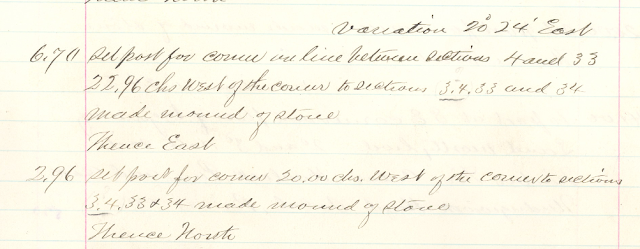 variation 20° 24' East
6,70 set post for corner on line between sections 4 and 33
22,96 chs West of the corner to sections 3,4,33 and 34
made mound of stone
Thence East
2,96 set post for corner 20.00 chs. West of the corner to sections
3,4,33 & 34 made mound of stone
Thence North